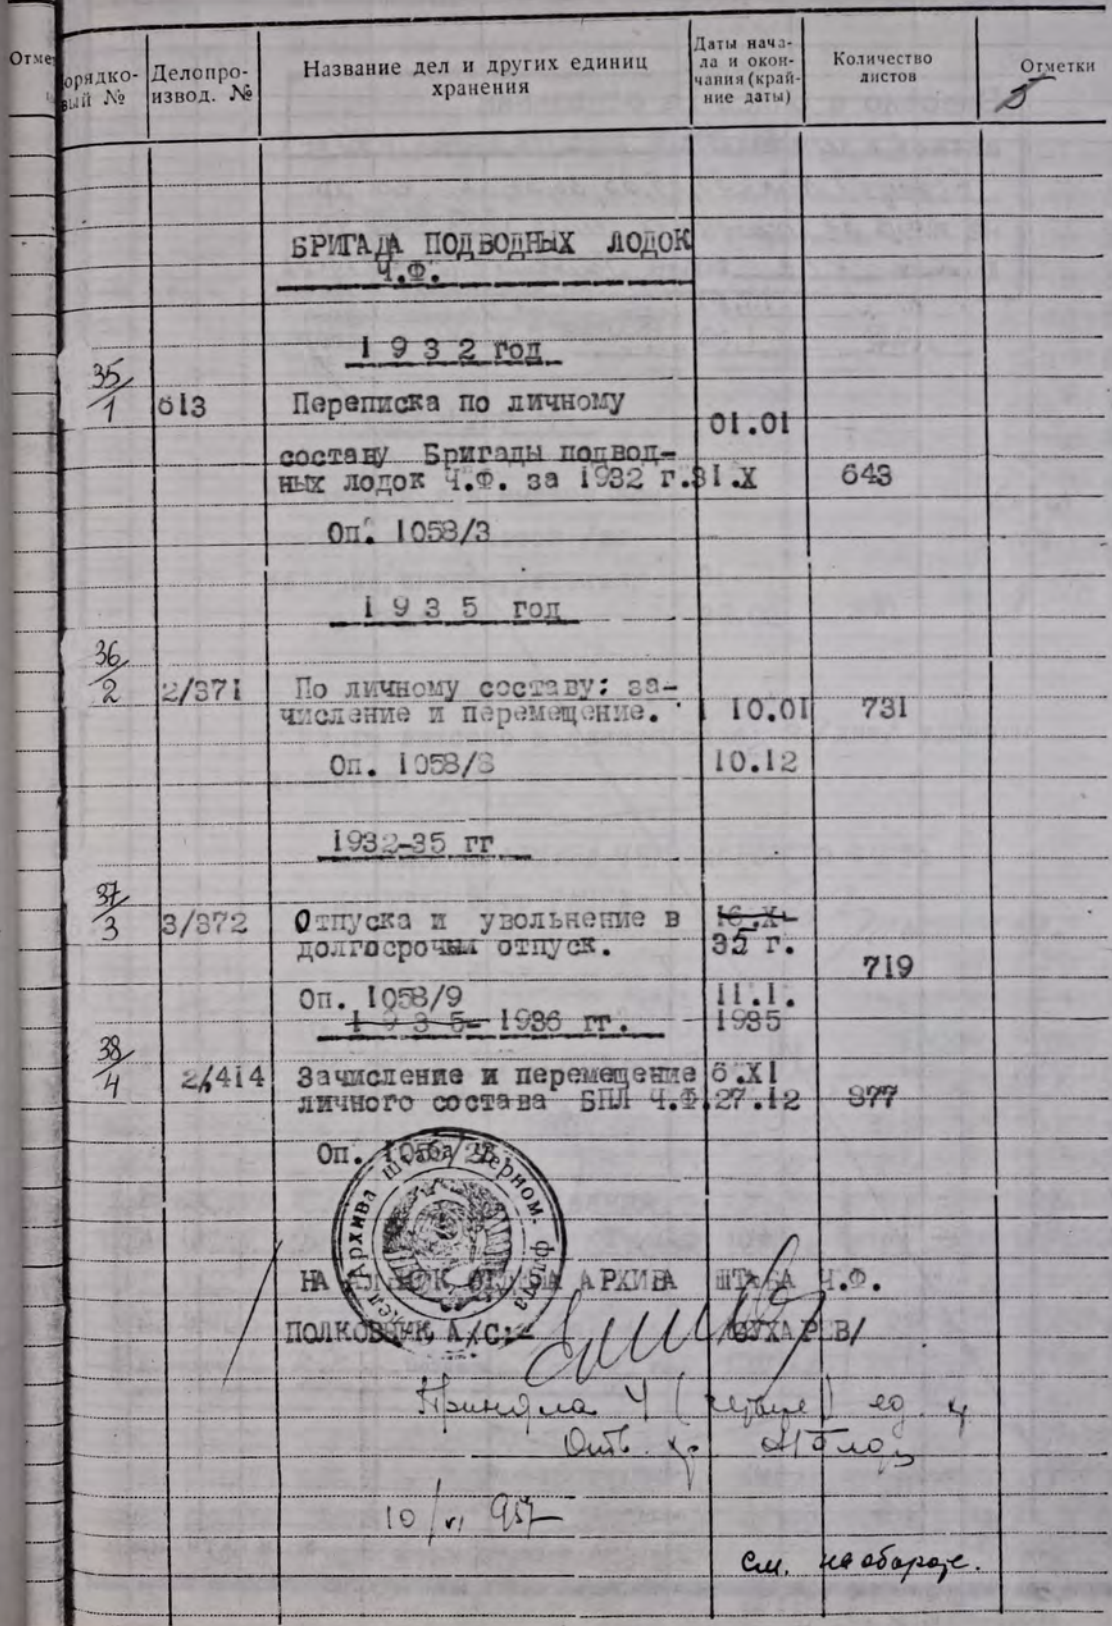 Отме
орядко-
вый №
Делопро-
извод. №
Название дел и других единиц
хранения
Даты нача-
ла и окон-
чания (край-
ние даты)
Количество
листов
Отметки
5
БРИГАДА ПОДВОДНЫХ ЛОДОК
Ч.Ф.
1 9 3 2 год
35/1 613 Переписка по личному
01.01
составу Бригады подвод-
ных лодок Ч.Ф. за 1932 г. 31.X 643
Оп. 1058/3
1 9 3 5 год
36/2 2/371 По личному составу: за-
числение и перемещение. 10.01 731
Оп. 1058/8 10.12
1932-35 гг
37/3 3/372 Отпуска и увольнение в 16.X.
долгосрочный отпуск. 35 г.
719
Оп. 1058/9 11.1.
1 9 3 5- 1936 гг. 1935
38/4 2/414 Зачисление и перемещение 6.XI
личного состава БПЛ Ч.Ф. 27.12 377
Оп.
Архива Штаба Черном. флота
НАЧАЛЬНИК ОТДЕЛА АРХИВА ШТАБА Ч.Ф.
ПОЛКОВНИК А/С:- /СУХАРЕВ/
Приняла 4 (четыре) ед.
10/VI 957
См. на обороте.